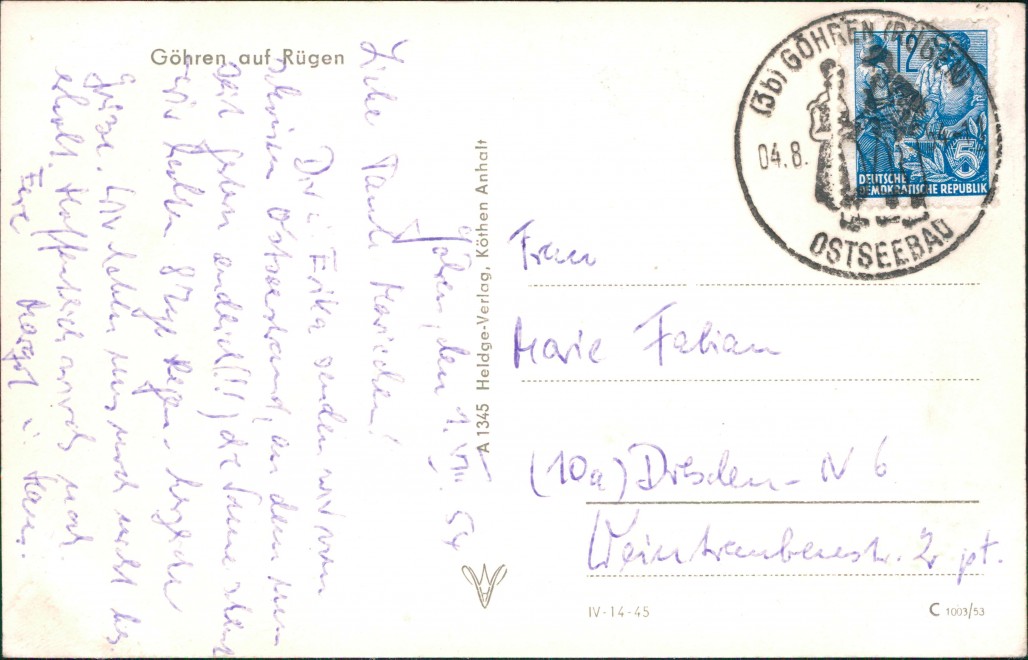 Göhren auf Rügen
Göhren, den 1. VIII. 54
Liebe Tante Mariechen!
Dir u. Erika senden wir vom
schönen Ostseestrand, an dem nun
seit gestern endlich(!!!) die Sonne scheint
wir hatten 8 Tge Regen - herzliche
Grüße. Wir haben uns noch nicht
erholt. Hoffentlich wirds noch.
Eure Margot u. Hans.
A 1345 Heldge-Verlag, Köthen Anhalt
(3b) GÖHREN (RÜGEN)
04.8.
OSTSEEBAD
12
5
DEUTSCHE
DEMOKRATISCHE REPUBLIK
Frau
Marie Fabian
(10a) Dresden-N 6
Weintraubenstr. 2 pt.
IV-14-45
C 1003/53